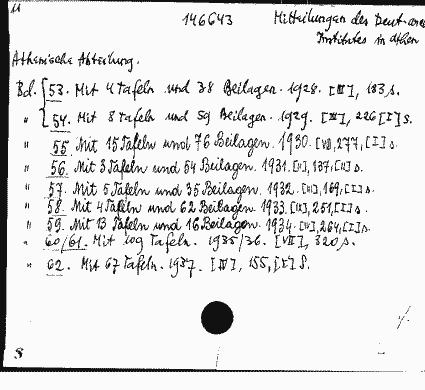 M
146643 Mitteilungen des Deut. arch
Institutes in Athen
Athenische Abteilung.
Bd. 53. Mit 4 Tafeln und 38 Beilagen. 1928. [III], 183 s.
" 54. Mit 8 Tafeln und 59 Beilagen. 1929. [III], 226 [I] s.
" 55 Mit 15 Tafeln und 76 Beilagen. 1930. [VI], 277, [I] s
" 56. Mit 3 Tafeln und 54 Beilagen. 1931. [II], 137, [II] s.
" 57. Mit 5 Tafeln und 35 Beilagen. 1932. [II], 169, [I] s.
" 58. Mit 4 Tafeln und 62 Beilagen. 1933. [II], 251, [I] s.
" 59. Mit 13 Tafeln und 16 Beilagen. 1934. [II], 264, [I] s.
" 60/61. Mit 109 Tafeln. 1935/36. [VII], 320 s.
" 62. Mit 67 Tafeln. 1937. [IV], 155, [I] S.
S